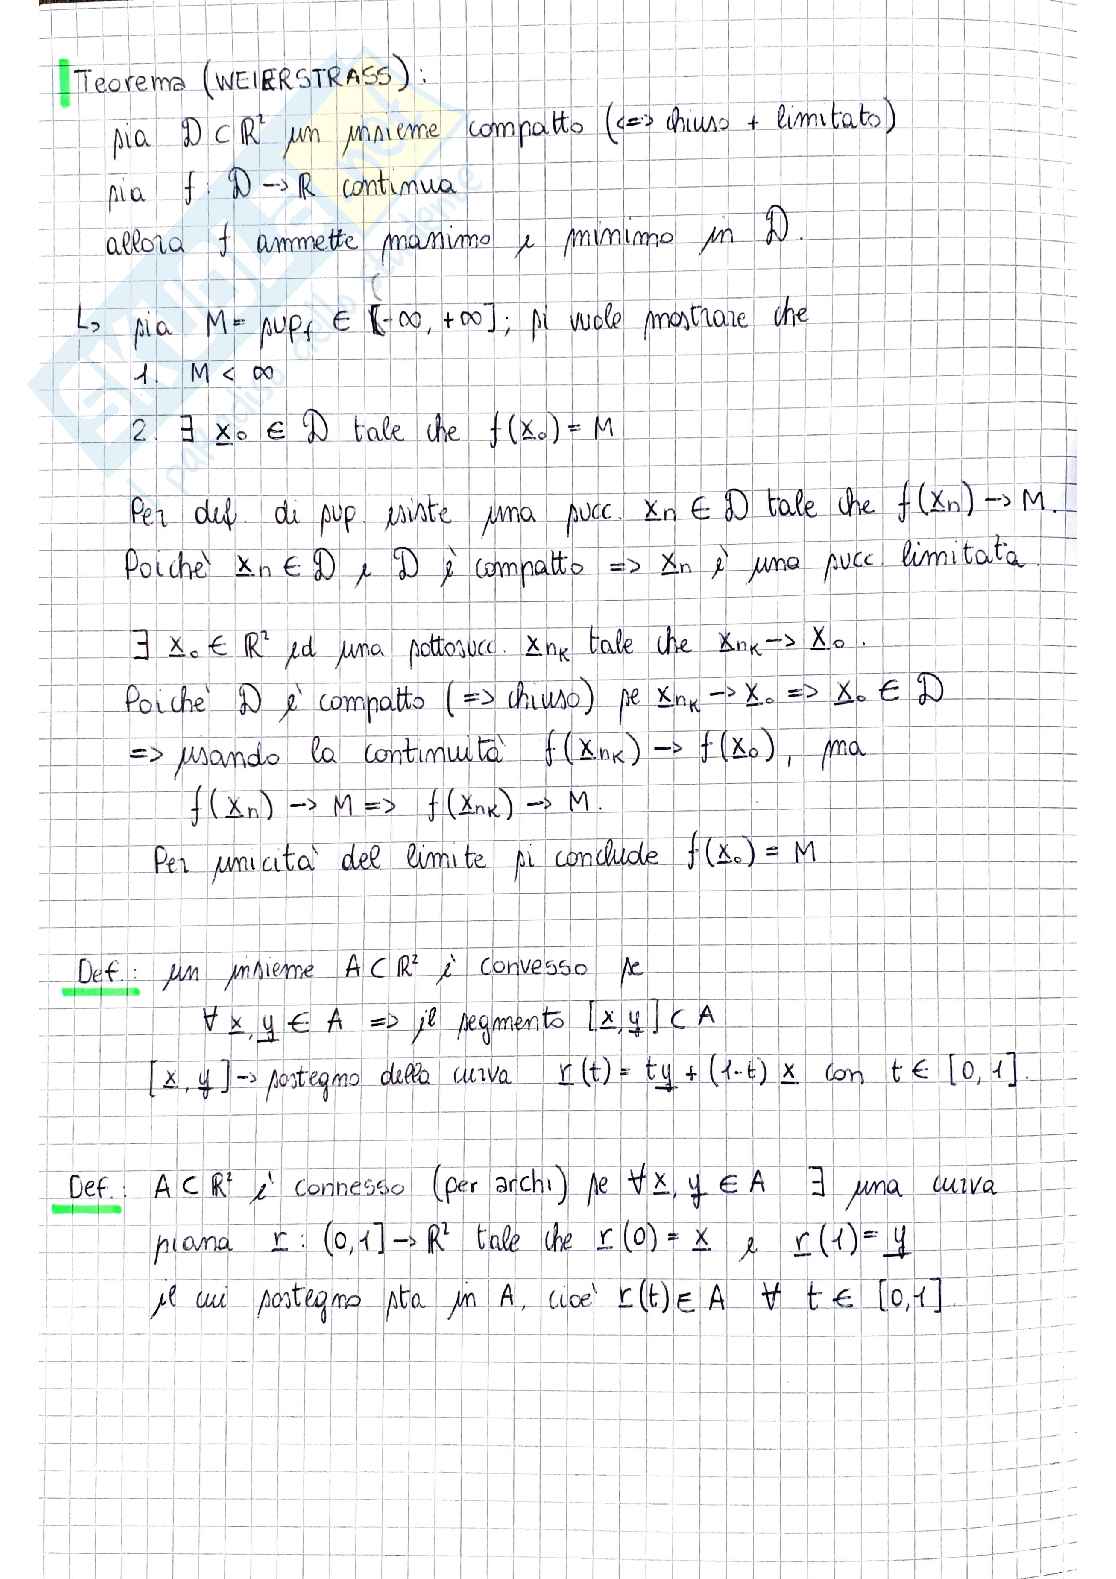 Teorema (WEIERSTRASS):
sia D ⊂ ℝ² un insieme compatto (<=> chiuso + limitato)
sia f: D → ℝ continua
allora f ammette massimo e minimo in D.
↳ sia M = sup_f ∈ [-∞, +∞]; si vuole mostrare che
1. M < ∞
2. ∃ x₀ ∈ D tale che f(x₀) = M
Per def. di sup. esiste una succ. xn ∈ D tale che f(xn) → M.
Poichè xn ∈ D e D è compatto => xn è una succ. limitata.
∃ x₀ ∈ ℝ² ed una sottosucc. xnₖ tale che xnₖ → x₀.
Poiche' D è compatto (=> chiuso) se xnₖ → x₀ => x₀ ∈ D
=> usando la continuità f(xnₖ) → f(x₀), ma
f(xn) → M => f(xnₖ) → M.
Per unicità del limite si conclude f(x₀) = M
Def.: un insieme A ⊂ ℝ² è convesso se
∀ x, y ∈ A => il segmento [x, y] ⊂ A
[x, y] → sostegno della curva r(t) = ty + (1-t) x con t ∈ [0, 1].
Def.: A ⊂ ℝ² è connesso (per archi) se ∀ x, y ∈ A ∃ una curva
piana r: (0,1] → ℝ² tale che r(0) = x e r(1) = y
il cui sostegno sta in A, cioe' r(t) ∈ A ∀ t ∈ [0,1].